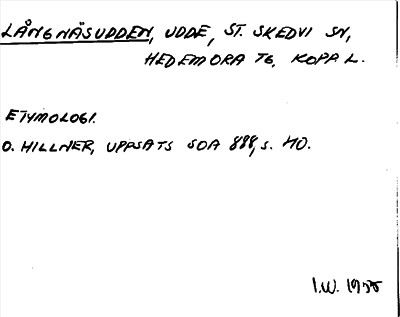 LÅNGNÄSUDDEN, UDDE, ST. SKEDVI SN,
HEDEMORA TG, KOPP. L.
ETYMOLOGI.
O. HILLNER, UPPSATS SOA 888, S. 40.
I.W. 19